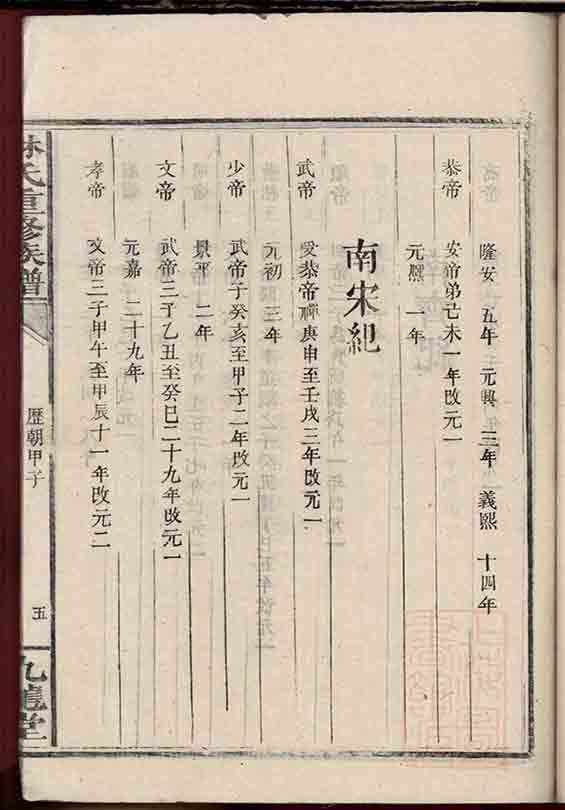 隆安 五年 元興 三年 義熙 十四年
恭帝 安帝弟己未一年改元一
元熙 一年
南宋紀
武帝 受恭帝禪庚申至壬戌三年改元一
元初 三年
少帝 武帝子癸亥至甲子二年改元一
景平 二年
文帝 武帝三子乙丑至癸巳二十九年改元一
元嘉 二十九年
孝帝 文帝三子甲午至甲辰十一年改元二
林氏重修族譜
歷朝甲子
五
九龍堂